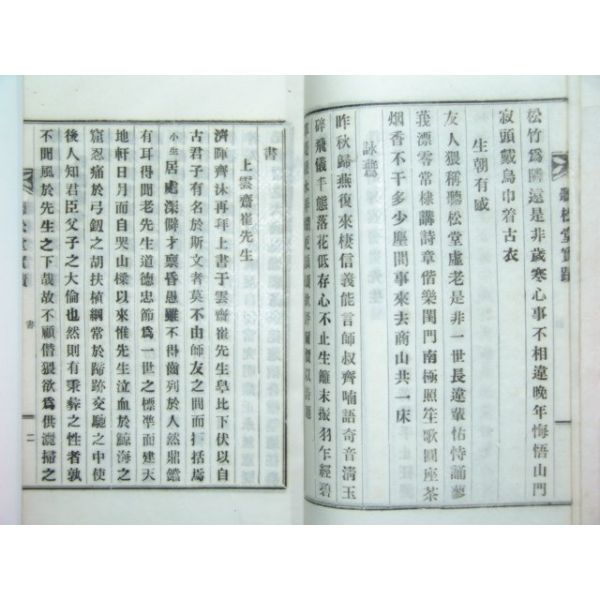 松竹爲隣遠是非歲寒心事不相違晚年悔悟山門
寂頭戴烏巾着古衣
生朝有感
友人猥稱聽松堂虛老是非一世長遠輩怙恃誦蓼
莪漂零常棣購詩章偕樂閨門南極照笙歌圓座茶
烟香不干多少塵間事來去商山共一床
詠鷰
昨秋歸燕復來棲信義能言師叔齊喃語奇音淸玉
碎飛儀千態落花低存心不止生雛末振羽乍經碧
書
上雲齋崔先生
濟暉齊沐再拜上書于雲齋崔先生皐比下伏以自
古君子有名於斯文者莫不由師友之間而焉
小生居處深僻才禀昏愚雖不得齒列於人然鼎鐺
有耳得聞老先生道德忠節爲一世之標準而建天
地軒日月而自哭山樑以來惟先生泣血於鯨海之
窟忍痛於弓釼之胡扶植綱常於歸跡交馳之中使
後人知君臣父子之大倫也然則有秉彝之性者孰
不聞風於先生之下哉故不顧僭猥欲爲供灑掃之
書
二